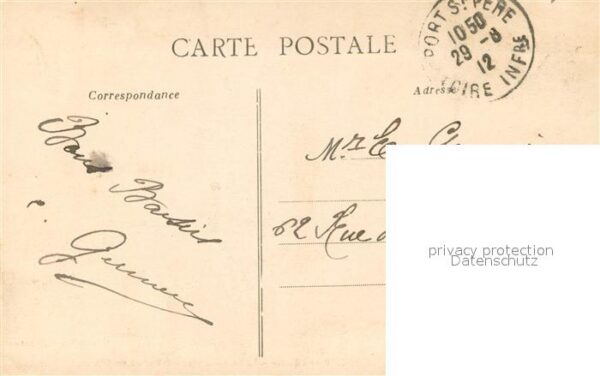 CARTE POSTALE
PORT ST PERE
1050
29 -8
12
LOIRE INFRE
Correspondance
Adresse
Bons Baisers
Mr E.
62 Rue
privacy protection
Datenschutz